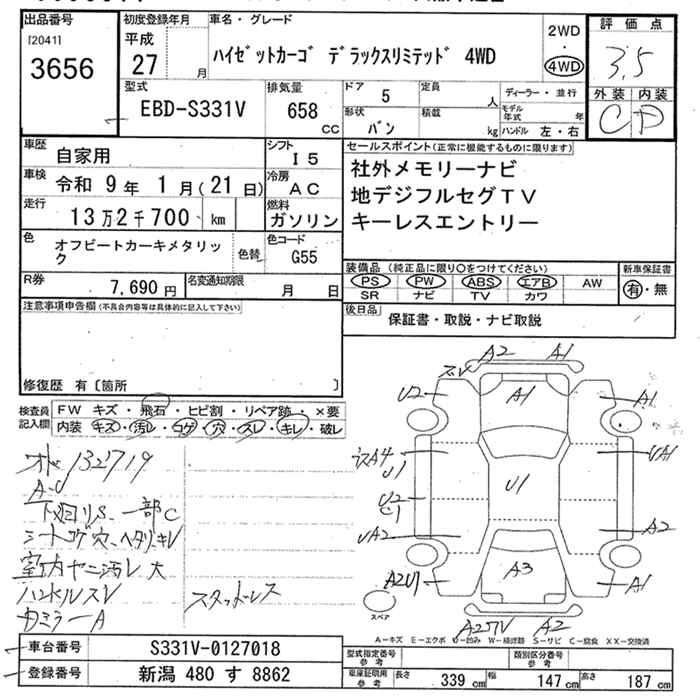 出品番号
[2041]
3656
初度登録年月
平成
27 月
車名・グレード
ハイゼットカーゴ デラックスリミテッド 4WD
2WD
・
4WD
評価点
3.5
外装 内装
C D
型式
EBD-S331V
排気量
658
cc
ドア 5
定員 人
ディーラー・並行
形状 バン
積載 kg
モデル年式 年
ハンドル 左・右
車歴
自家用
シフト
I5
車検
令和 9年 1月(21日)
冷房
AC
走行
13万2千700 km
燃料
ガソリン
色
オフビートカーキメタリック
色替
色コード
G55
R券
7,690 円
名変通知期限
月 日
セールスポイント(正常に機能するものに限ります)
社外メモリーナビ
地デジフルセグTV
キーレスエントリー
装備品 (純正品に限り〇をつけてください)
新車保証書
PS PW ABS エアB AW
SR ナビ TV カワ
有・無
後日品
保証書・取説・ナビ取説
注意事項申告欄(不具合内容等は具体的に記入して下さい)
修復歴 有〔箇所 〕
検査員記入欄
FW キズ・飛石・ヒビ割・リペア跡・×要
内装 キズ・汚レ・コゲ・穴・スレ・キレ・破レ
132719
A・U
下回りS、一部C
シートコゲ穴、ヘタリ、キレ
室内ヤニ汚レ 大
ハンドルスレ
カミラーA
スタッドレス
A2 A1
スレ
U2
A1
A1
A4
U1
UA1
U2
C1
U1
UA2
A2
A2U1
A3
A1
A2
スペア
A-キズ E-エクボ U-凹み W-補修跡 S-サビ C-腐食 XX-交換済
車台番号
S331V-0127018
登録番号
新潟 480 す 8862
型式指定番号
参考
類別区分番号
参考
車庫証明用
参考
長さ 339 cm
幅 147 cm
高さ 187 cm